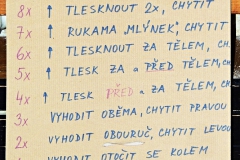 8x ↑ TLESKNOUT 2x, CHYTIT
7x ↑ RUKAMA „MLÝNEK", CHYTIT
6x ↑ TLESKNOUT ZA TĚLEM, CH
5x ↑ TLESK ZA a PŘED TĚLEM, CH
4x ↑ TLESK PŘED a ZA TĚLEM, CH
3x VYHODIT OBĚMA, CHYTIT PRAVOU
2x VYHODIT OBOURUČ, CHYTIT LEVOU
VYHODIT OTOČIT SE KOLEM